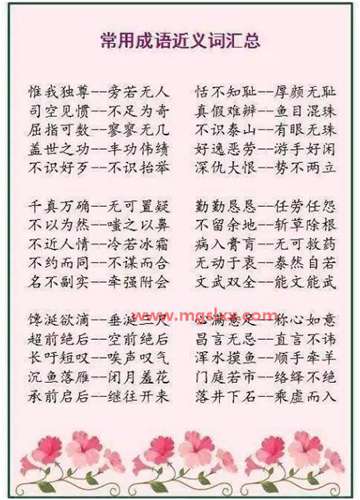 常用成语近义词汇总
惟我独尊--旁若无人 恬不知耻--厚颜无耻
司空见惯--不足为奇 真假难辨--鱼目混珠
屈指可数--寥寥无几 不识泰山--有眼无珠
盖世之功--丰功伟绩 好逸恶劳--游手好闲
不识好歹--不识抬举 深仇大恨--势不两立
千真万确--无可置疑 勤勤恳恳--任劳任怨
不以为然--嗤之以鼻 不留余地--斩草除根
不近人情--冷若冰霜 病入膏肓--无可救药
不约而同--不谋而合 无动于衷--泰然自若
名不副实--牵强附会 文武双全--能文能武
www.mgsbox.com
馋涎欲滴--垂涎三尺 心满意足--称心如意
超前绝后--空前绝后 昌言无忌--直言不讳
长吁短叹--唉声叹气 浑水摸鱼--顺手牵羊
沉鱼落雁--闭月羞花 门庭若市--络绎不绝
承前启后--继往开来 落井下石--乘虚而入